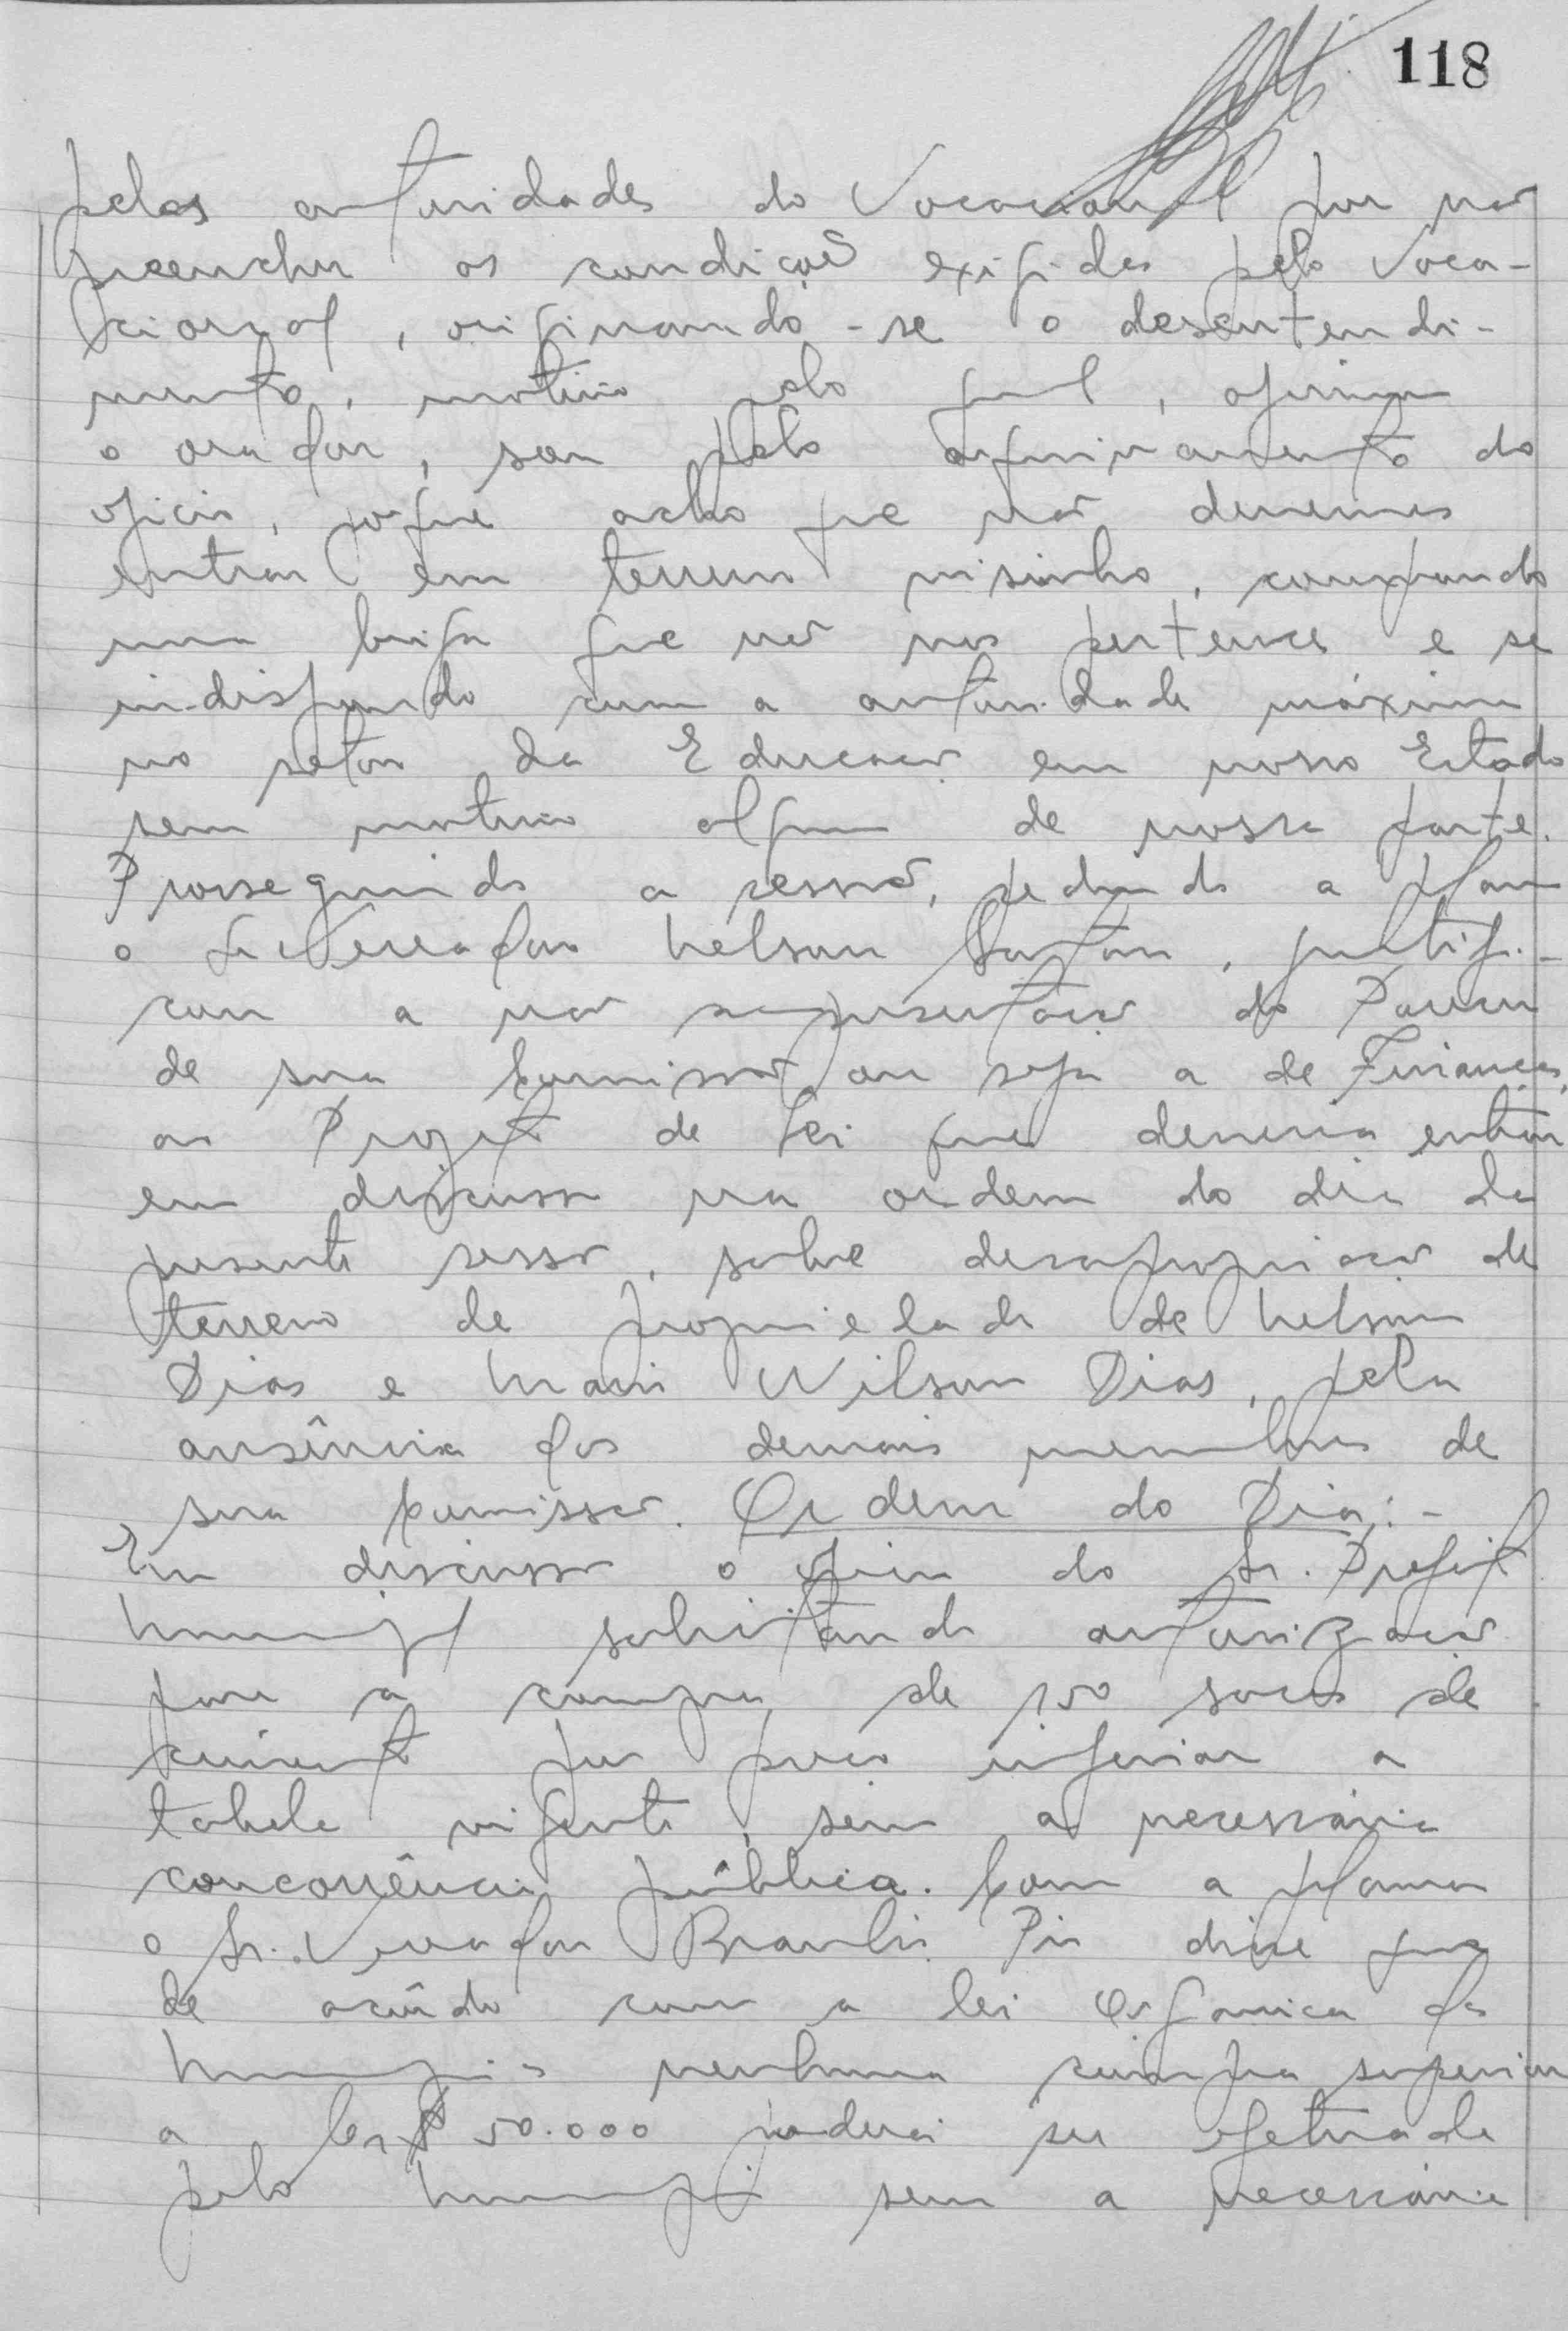 118
pelas autoridades do Vocacional por não
preencher as condições exigidas pelo Voca-
cional, originando-se o desentendi-
mento, motivo pelo qual, afirma
o orador, sou pelo arquivamento do
oficio, porque acho que não devemos
entrar em terreno visinho, comprando
uma briga que não nos pertence e se
indispondo com a autoridade máxima
no setor da Educação em nosso Estado
sem motivo algum de nossa parte.
Prosseguindo a sessão, pedindo a palavra
o Sr. Vereador Nelson, justifi-
cou a não apresentação do Parecer
de sua Comissão ou seja a de Finanças,
ao Projeto de Lei que deveria entrar
em discussão na ordem do dia da
presente sessão, sobre desapropriação de
terreno de propriedade de Nelson
Dias e Mario Wilson Dias, pela
ausência dos demais membros de
sua comissão. Ordem do Dia:-
Em discussão o oficio do Sr. Prefeito
Municipal solicitando autorização
para a compra de 150 sacos de
cimento por preço inferior a
tabela vigente, sem a necessária
concorrência pública. Com a palavra
o Sr. Vereador Braulio Pio disse que
de acôrdo com a lei Orgânica dos
Municipios nenhuma compra superior
a Cr$ 50.000 poderá ser efetuada
pelo Municipio sem a necessária